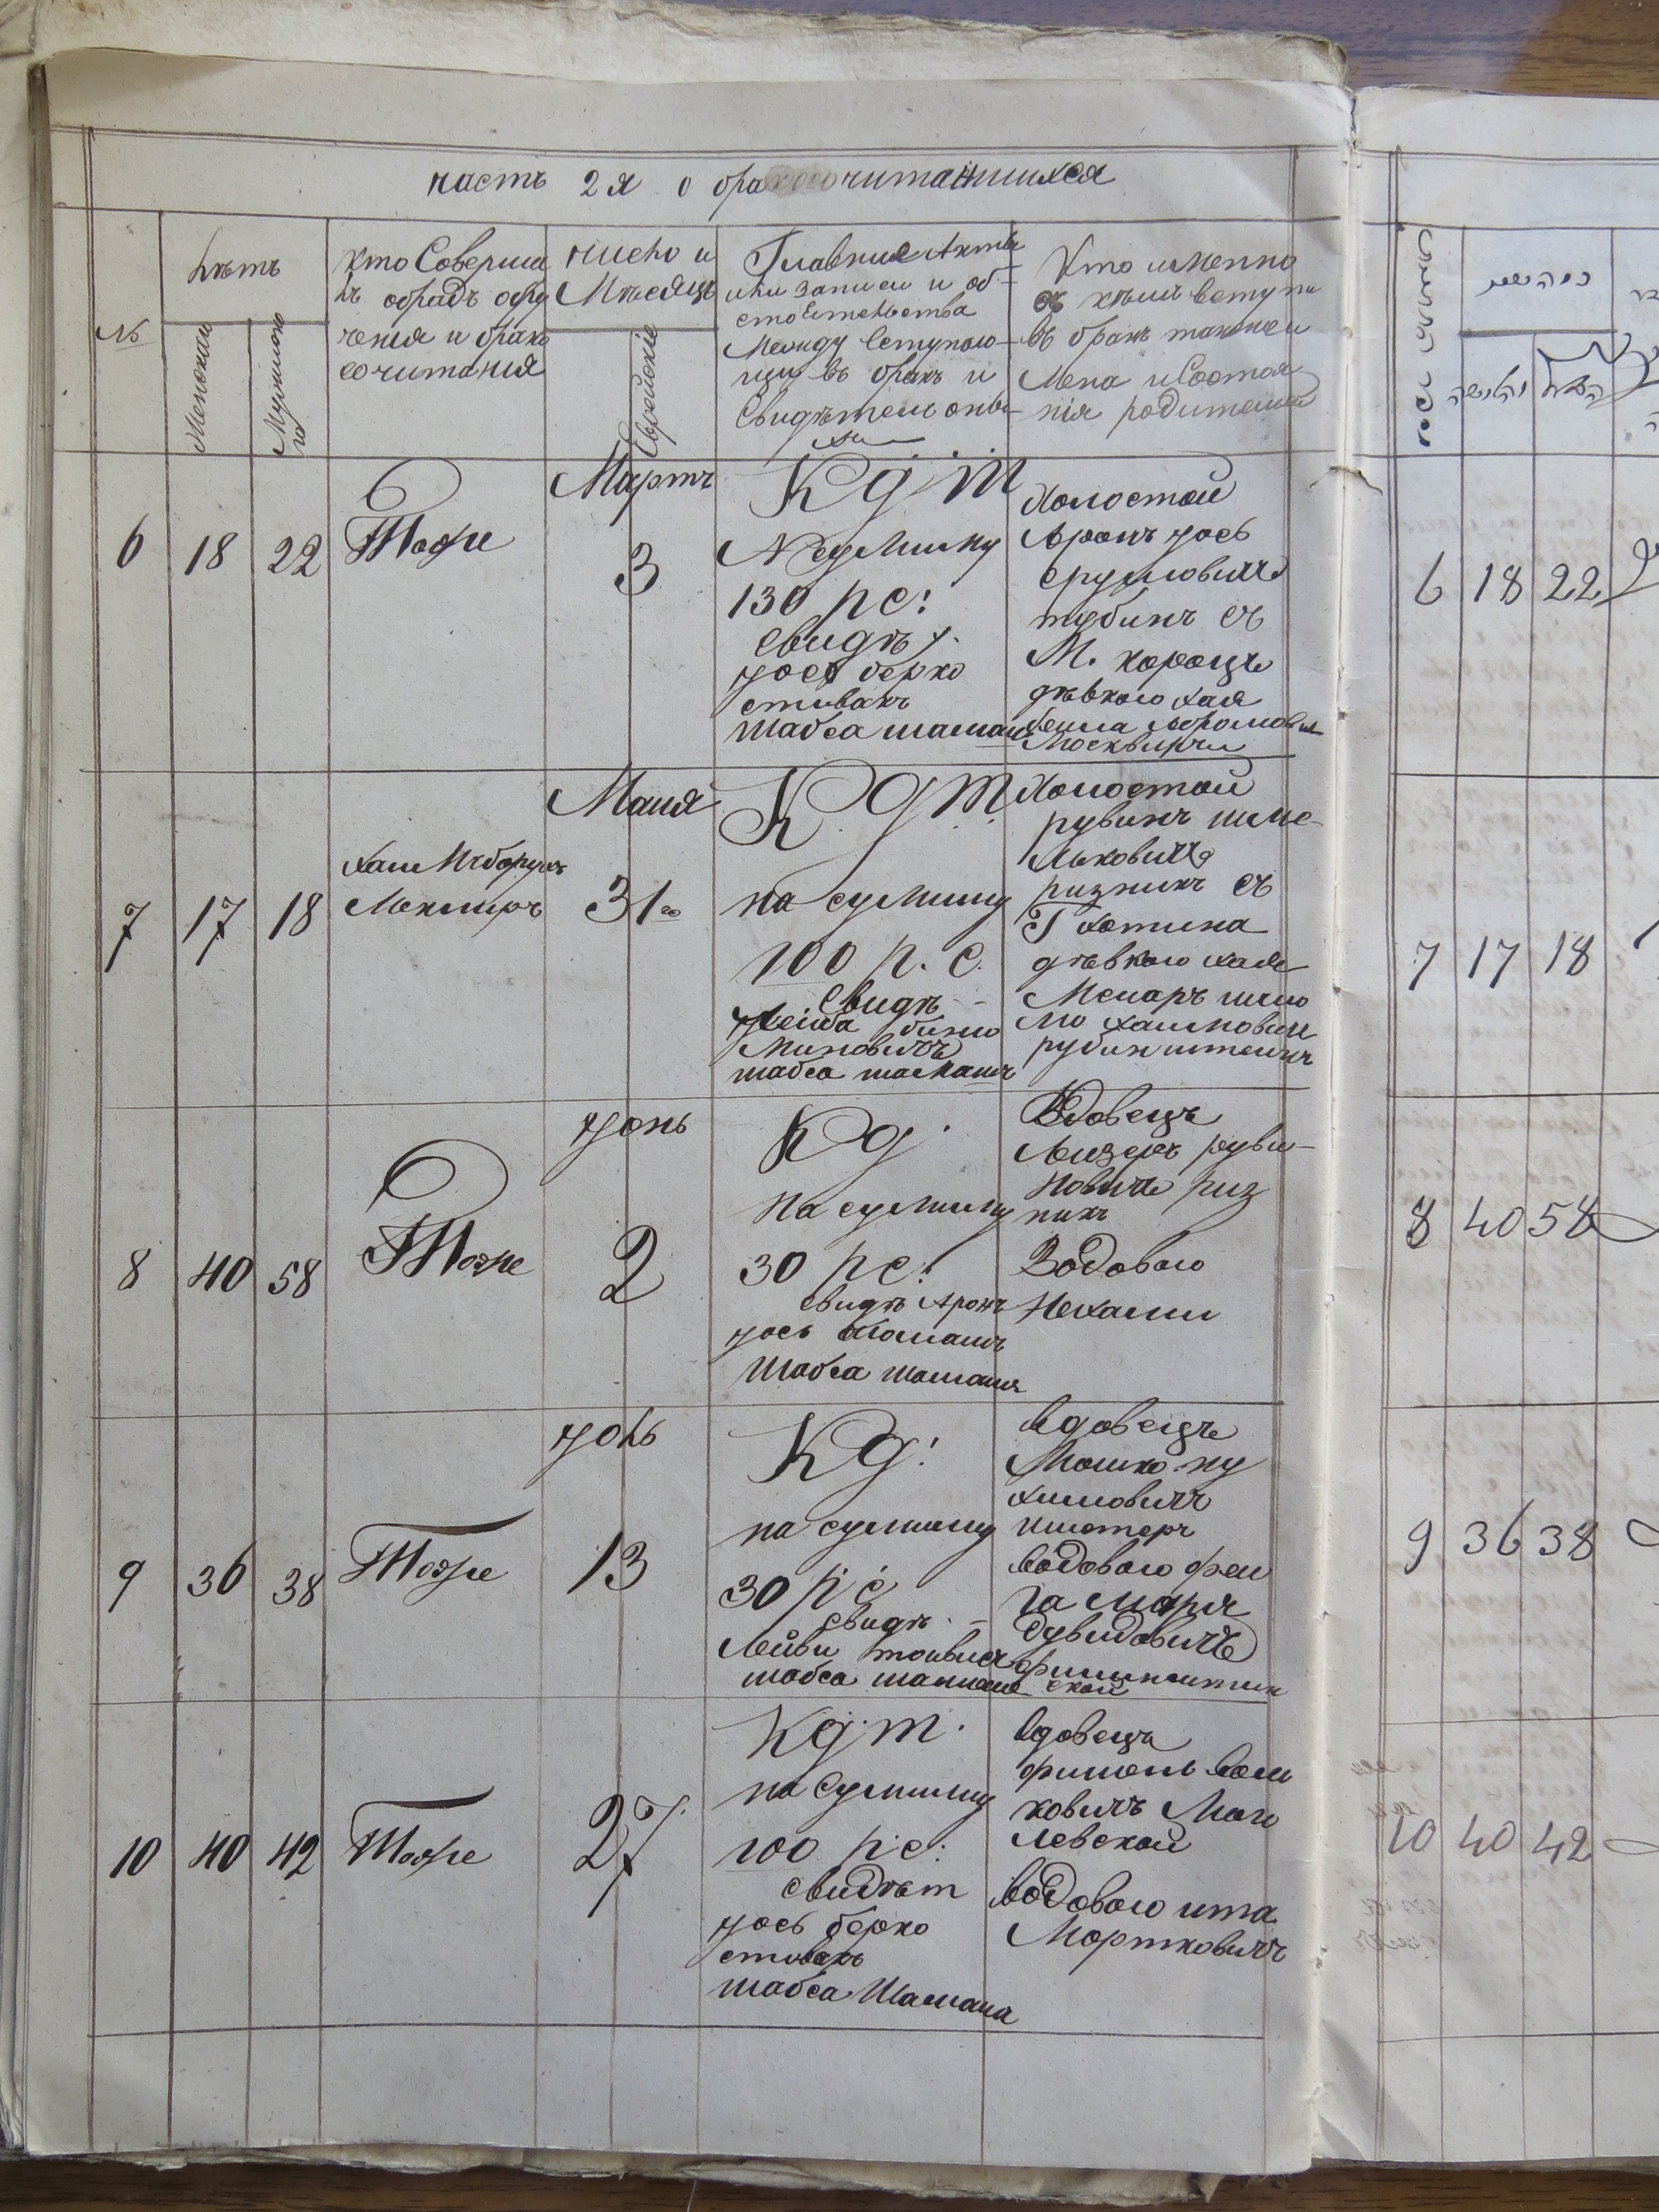 часть 2я о бракосочитавшихся
№
Лѣтъ
Женскаго
Мужскаго
Кто Соверша
лъ обрадъ обру
ченія и брако
сочитанія
число и
Мѣсяцъ
Еврейскіе
Главние Акты
или записи и об-
стоятельства
Между вступаю-
щи въ бракъ и
Свидѣтели оны-
хъ
Кто именно
съ кѣмъ вступи
въ бракъ также и
Имена и Состоя
нія родителей
6
18
22
Тоже
Мартъ
3
К д т
На сумму
130 р с:
свидѣ:
юсь берко
спивакъ
шабса шамаш
Холостой
Аронъ юсь
сруловичъ
губинъ съ
М. корець
дѣвкою хая
бейла Абрамовы
Москвирчи
7
17
18
Хаим Мебарухъ
Меклеръ
Маия
31го
К д т
на сумму
100 р. с.
Свидѣ
Лейба бинio
миновичъ
шабса шамашъ
Холостой
рувинъ шме-
льковичъ
ризникъ съ
Г хотина
дѣвкою хая
шлio
мо хаимович
рубинштейнъ
8
40
58
Тоже
юнь
2
К д
На сумму
30 р с.
свидѣ Аронъ
юсь
шабса шамашъ
Вдовецъ
Лизеръ руви-
новичъ риз
никъ
Водовою
Нехами
9
36
38
Тоже
юль
13
К д:
на сумму
30 р с
свидѣ
Лейби товьисъ
шабса шамаша
вдовецъ
Мошко ну
химовичъ
вдовою феи
га маря
дувидовичъ
ской
10
40
42
Тоже
27
К д т.
на сумму
100 р с:
свидѣт
юсь берко
спивакъ
шабса Шамаша
вдовецъ
фишель вол
ковичъ Маги
левской
водовою ита
Мортковичъ
6 18 22
7 17 18
8 40 58
9 36 38
10 40 42